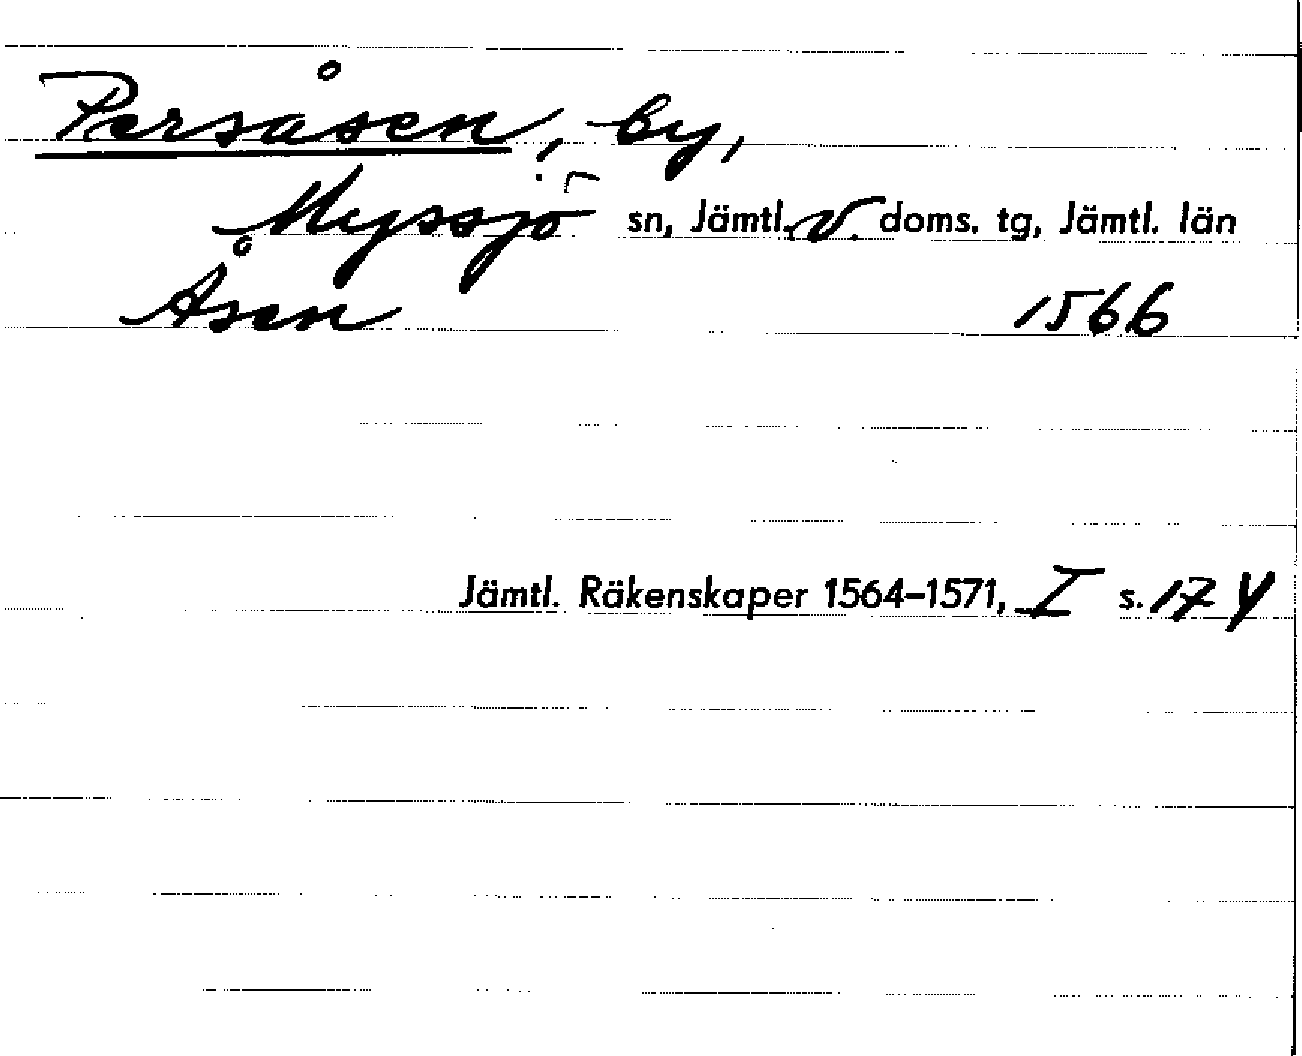 Persåsen, by,
Myssjö sn, Jämtl. v. doms. tg, Jämtl. län
Åsen 1566
Jämtl. Räkenskaper 1564–1571, I s. 17